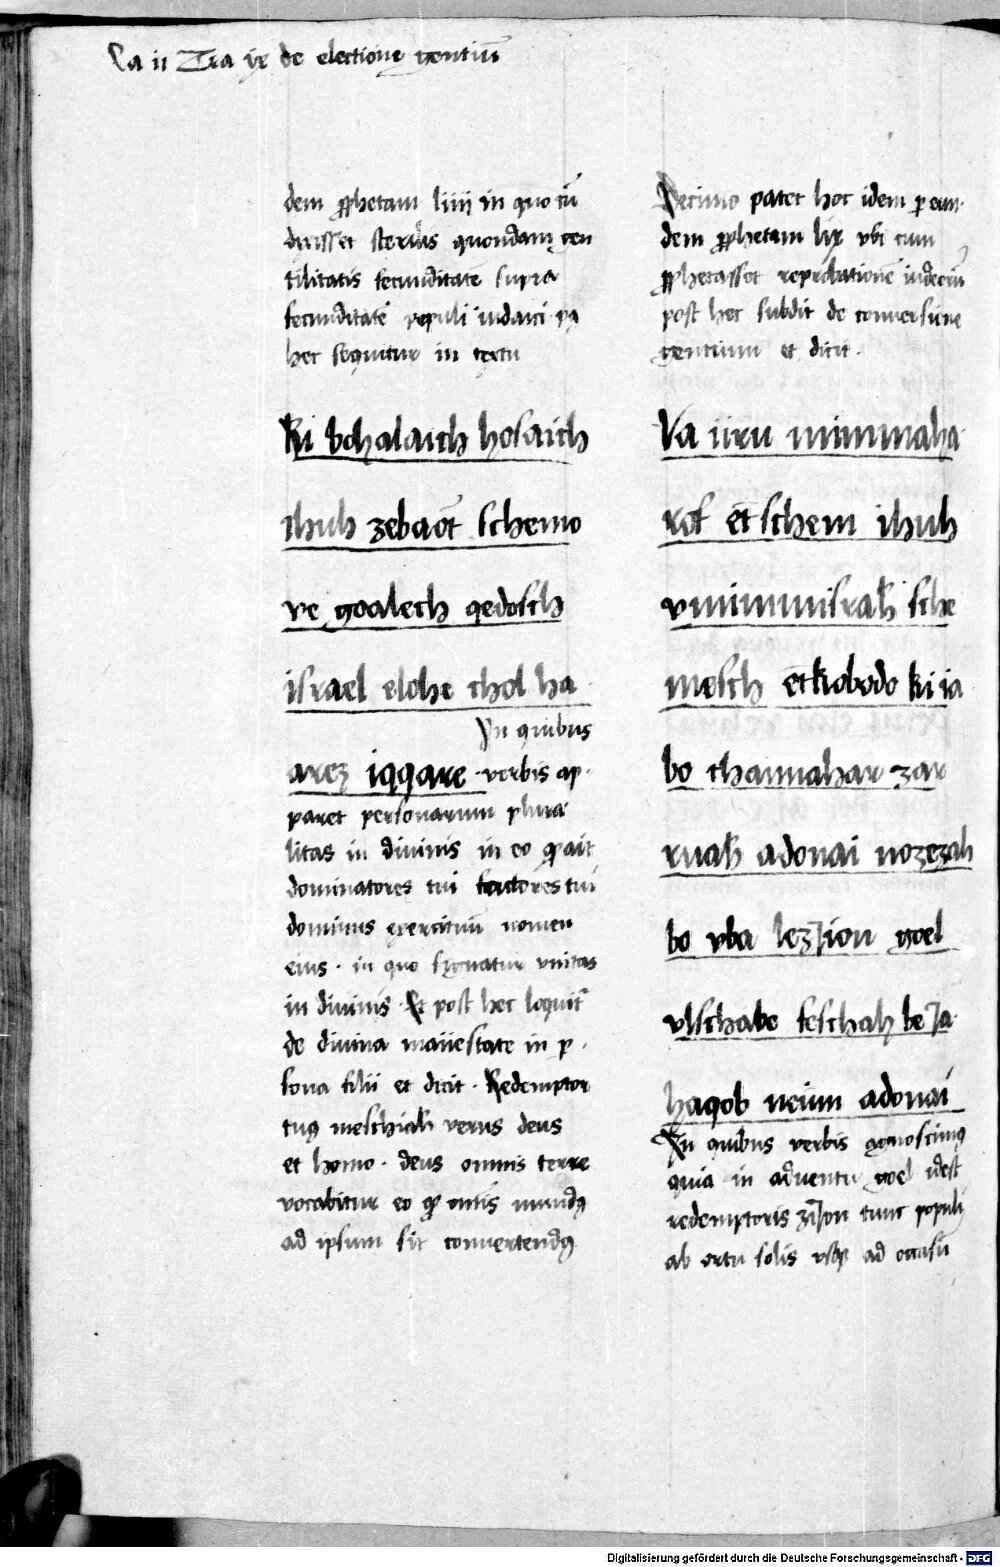 Ca ii Tra ix de electione gentiū
dem ꝓphetam liiii in quo cū
dixisset sterilis quondam gen
tilitatis fecunditatē supra
fecunditatē populi iudaici pꝰ
hec sequitur in textu
Ki bohalaich hosaich
ihuh zebaōt schemo
ve goalech qedosch
israel elohe chol ha
In quibus
arez iqqare verbis ap
paret personarum plura
litas in diuinis in eo ꝙ ait
dominatores tui factores tui
dominus exercituū nomen
eius · in quo signatur vnitas
in diuinis · Et post hec loquit᷑
de diuina maiiestate in p
sona filii et dicit · Redemptor
tuꝰ meschiah verus deus
et homo · deus omnis terre
vocabitur eo ꝙ om̄is mundꝰ
ad ipsum sit conuertendꝰ
Decimo patet hoc idem p eun
dem ꝓphetam lix vbi cum
ꝓphetasset reprobationē iudeorū
post hec subdit de conuersione
gentium et dicit ·
Va iiru mimmaha
rof et schem ihuh
vmimmisrah sche
mesch et kobodo ki ia
bo channahar zar
ruah adonai nozezah
bo vba lezijon goel
vlschabe feschah be Ja
haqob neum adonai
In quibus verbis agnoscimꝰ
quia in aduentu goel idest
redemptoris zijon tunc populi
ab ortu solis vsqꝫ ad occasū
Digitalisierung gefördert durch die Deutsche Forschungsgemeinschaft - DFG